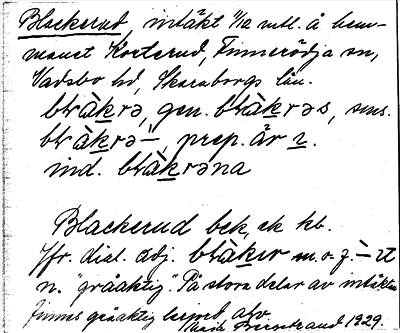 Blackerud, intäkt 1/12 mtl. å hem-
manet Korterud, Finnerödja sn,
Vadsbo hd, Skaraborgs län.
bɫàk̲rə, gen. bɫàk̲rəs, sms.
bɫàk̲rə-, prep. är ɪ.
ind. bɫàk̲rəna
Blackerud bek, ek kb.
Jfr. dial. adj. bɫàk̲ɪr m. o. f. - ɪt
n. "gråaktig". På stora delar av intäkten
finnes gråaktig 1929.